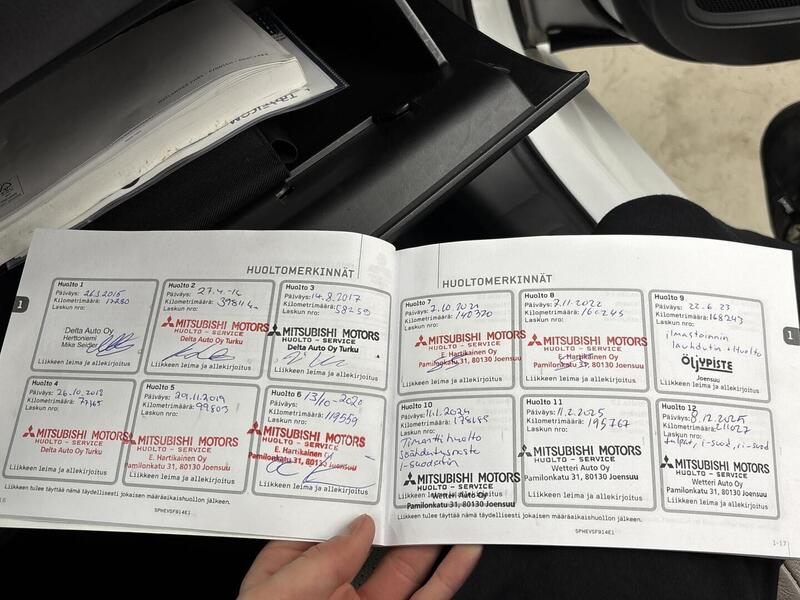 TRAFICOM
HUOLTOMERKINNÄT
1
Huolto 1
Päiväys: 26.3.2015
Kilometrimäärä: 17280
Laskun nro:
Delta Auto Oy
Herttoniemi
Liikkeen leima ja allekirjoitus
Huolto 2
Päiväys: 27.4.-16
Kilometrimäärä: 39811
Laskun nro:
MITSUBISHI MOTORS
HUOLTO - SERVICE
Delta Auto Oy Turku
Liikkeen leima ja allekirjoitus
Huolto 3
Päiväys: 14.8.2017
Kilometrimäärä: 58259
Laskun nro:
MITSUBISHI MOTORS
HUOLTO - SERVICE
Delta Auto Oy Turku
Liikkeen leima ja allekirjoitus
Huolto 4
Päiväys: 26.10.2018
Kilometrimäärä: 77365
Laskun nro:
MITSUBISHI MOTORS
HUOLTO - SERVICE
Delta Auto Oy Turku
Liikkeen leima ja allekirjoitus
Huolto 5
Päiväys: 29.11.2019
Kilometrimäärä: 99803
Laskun nro:
MITSUBISHI MOTORS
HUOLTO - SERVICE
E. Hartikainen Oy
Pamilonkatu 31, 80130 Joensuu
Liikkeen leima ja allekirjoitus
Huolto 6
Päiväys: 13/10-2020
Kilometrimäärä: 119559
Laskun nro:
MITSUBISHI MOTORS
HUOLTO - SERVICE
E. Hartikainen Oy
Pamilonkatu 31, 80130 Joensuu
Liikkeen leima ja allekirjoitus
Liikkeen tulee täyttää nämä täydellisesti jokaisen määräaikaishuollon jälkeen.
5PHEVSF914E1
HUOLTOMERKINNÄT
1
Huolto 7
Päiväys: 7.10.2021
Kilometrimäärä: 140370
Laskun nro:
MITSUBISHI MOTORS
HUOLTO - SERVICE
E. Hartikainen Oy
Pamilonkatu 31, 80130 Joensuu
Liikkeen leima ja allekirjoitus
Huolto 8
Päiväys: 7.11.2022
Kilometrimäärä: 160245
Laskun nro:
MITSUBISHI MOTORS
HUOLTO - SERVICE
E. Hartikainen Oy
Pamilonkatu 31, 80130 Joensuu
Liikkeen leima ja allekirjoitus
Huolto 9
Päiväys: 22.6.23
Kilometrimäärä: 168243
Laskun nro:
ilmastoinnin
lauhdutin + Huolto
ÖljyPISTE
Joensuu
Liikkeen leima ja allekirjoitus
Huolto 10
Päiväys: 11.1.2024
Kilometrimäärä: 178645
Laskun nro:
Timanttihuolto
i-suodatin
MITSUBISHI MOTORS
HUOLTO - SERVICE
Wetteri Auto Oy
Pamilonkatu 31, 80130 Joensuu
Liikkeen leima ja allekirjoitus
Huolto 11
Päiväys: 11.2.2025
Kilometrimäärä: 195767
Laskun nro:
MITSUBISHI MOTORS
HUOLTO - SERVICE
Wetteri Auto Oy
Pamilonkatu 31, 80130 Joensuu
Liikkeen leima ja allekirjoitus
Huolto 12
Päiväys: 8.12.2025
Kilometrimäärä: 211027
Laskun nro:
MITSUBISHI MOTORS
HUOLTO - SERVICE
Wetteri Auto Oy
Pamilonkatu 31, 80130 Joensuu
Liikkeen leima ja allekirjoitus
Liikkeen tulee täyttää nämä täydellisesti jokaisen määräaikaishuollon jälkeen.
1-17
5PHEVSF914E1